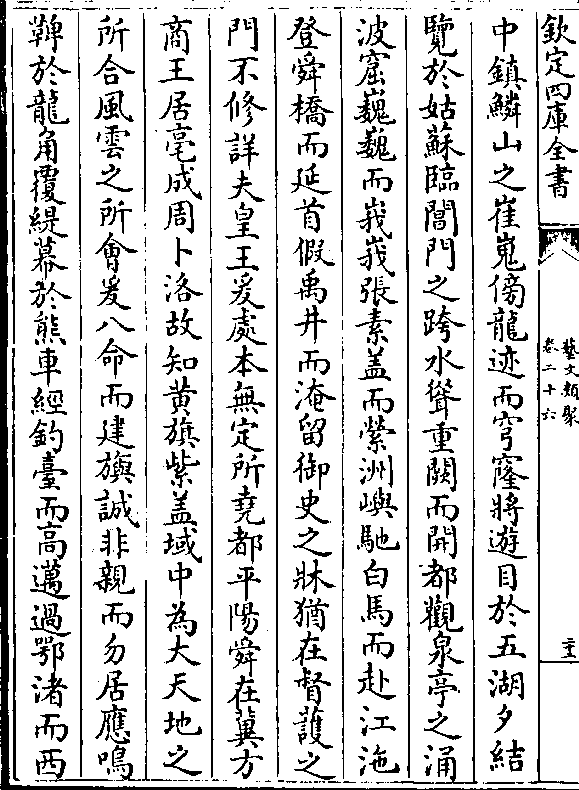 欽定四庫全書
藝文類聚
卷二十六
二十一
中鎮鱗山之崔嵬傍龍迹而穹窿將遊目於五湖夕結
覽於姑蘇臨閶門之跨水聳重闕而開都觀泉亭之涌
波窟巍巍而峩峩張素盖而縈洲嶼馳白馬而赴江沲
登舜橋而延首假禹井而淹留御史之牀猶在督護之
門不修詳夫皇王爰處本無定所堯都平陽舜在冀方
商王居亳成周卜洛故知黄旗紫盖域中為大天地之
所合風雲之所會爰八命而建旟誠非親而勿居應鳴
鞞於龍角覆緹幕於熊車經釣臺而高邁過鄂渚而西